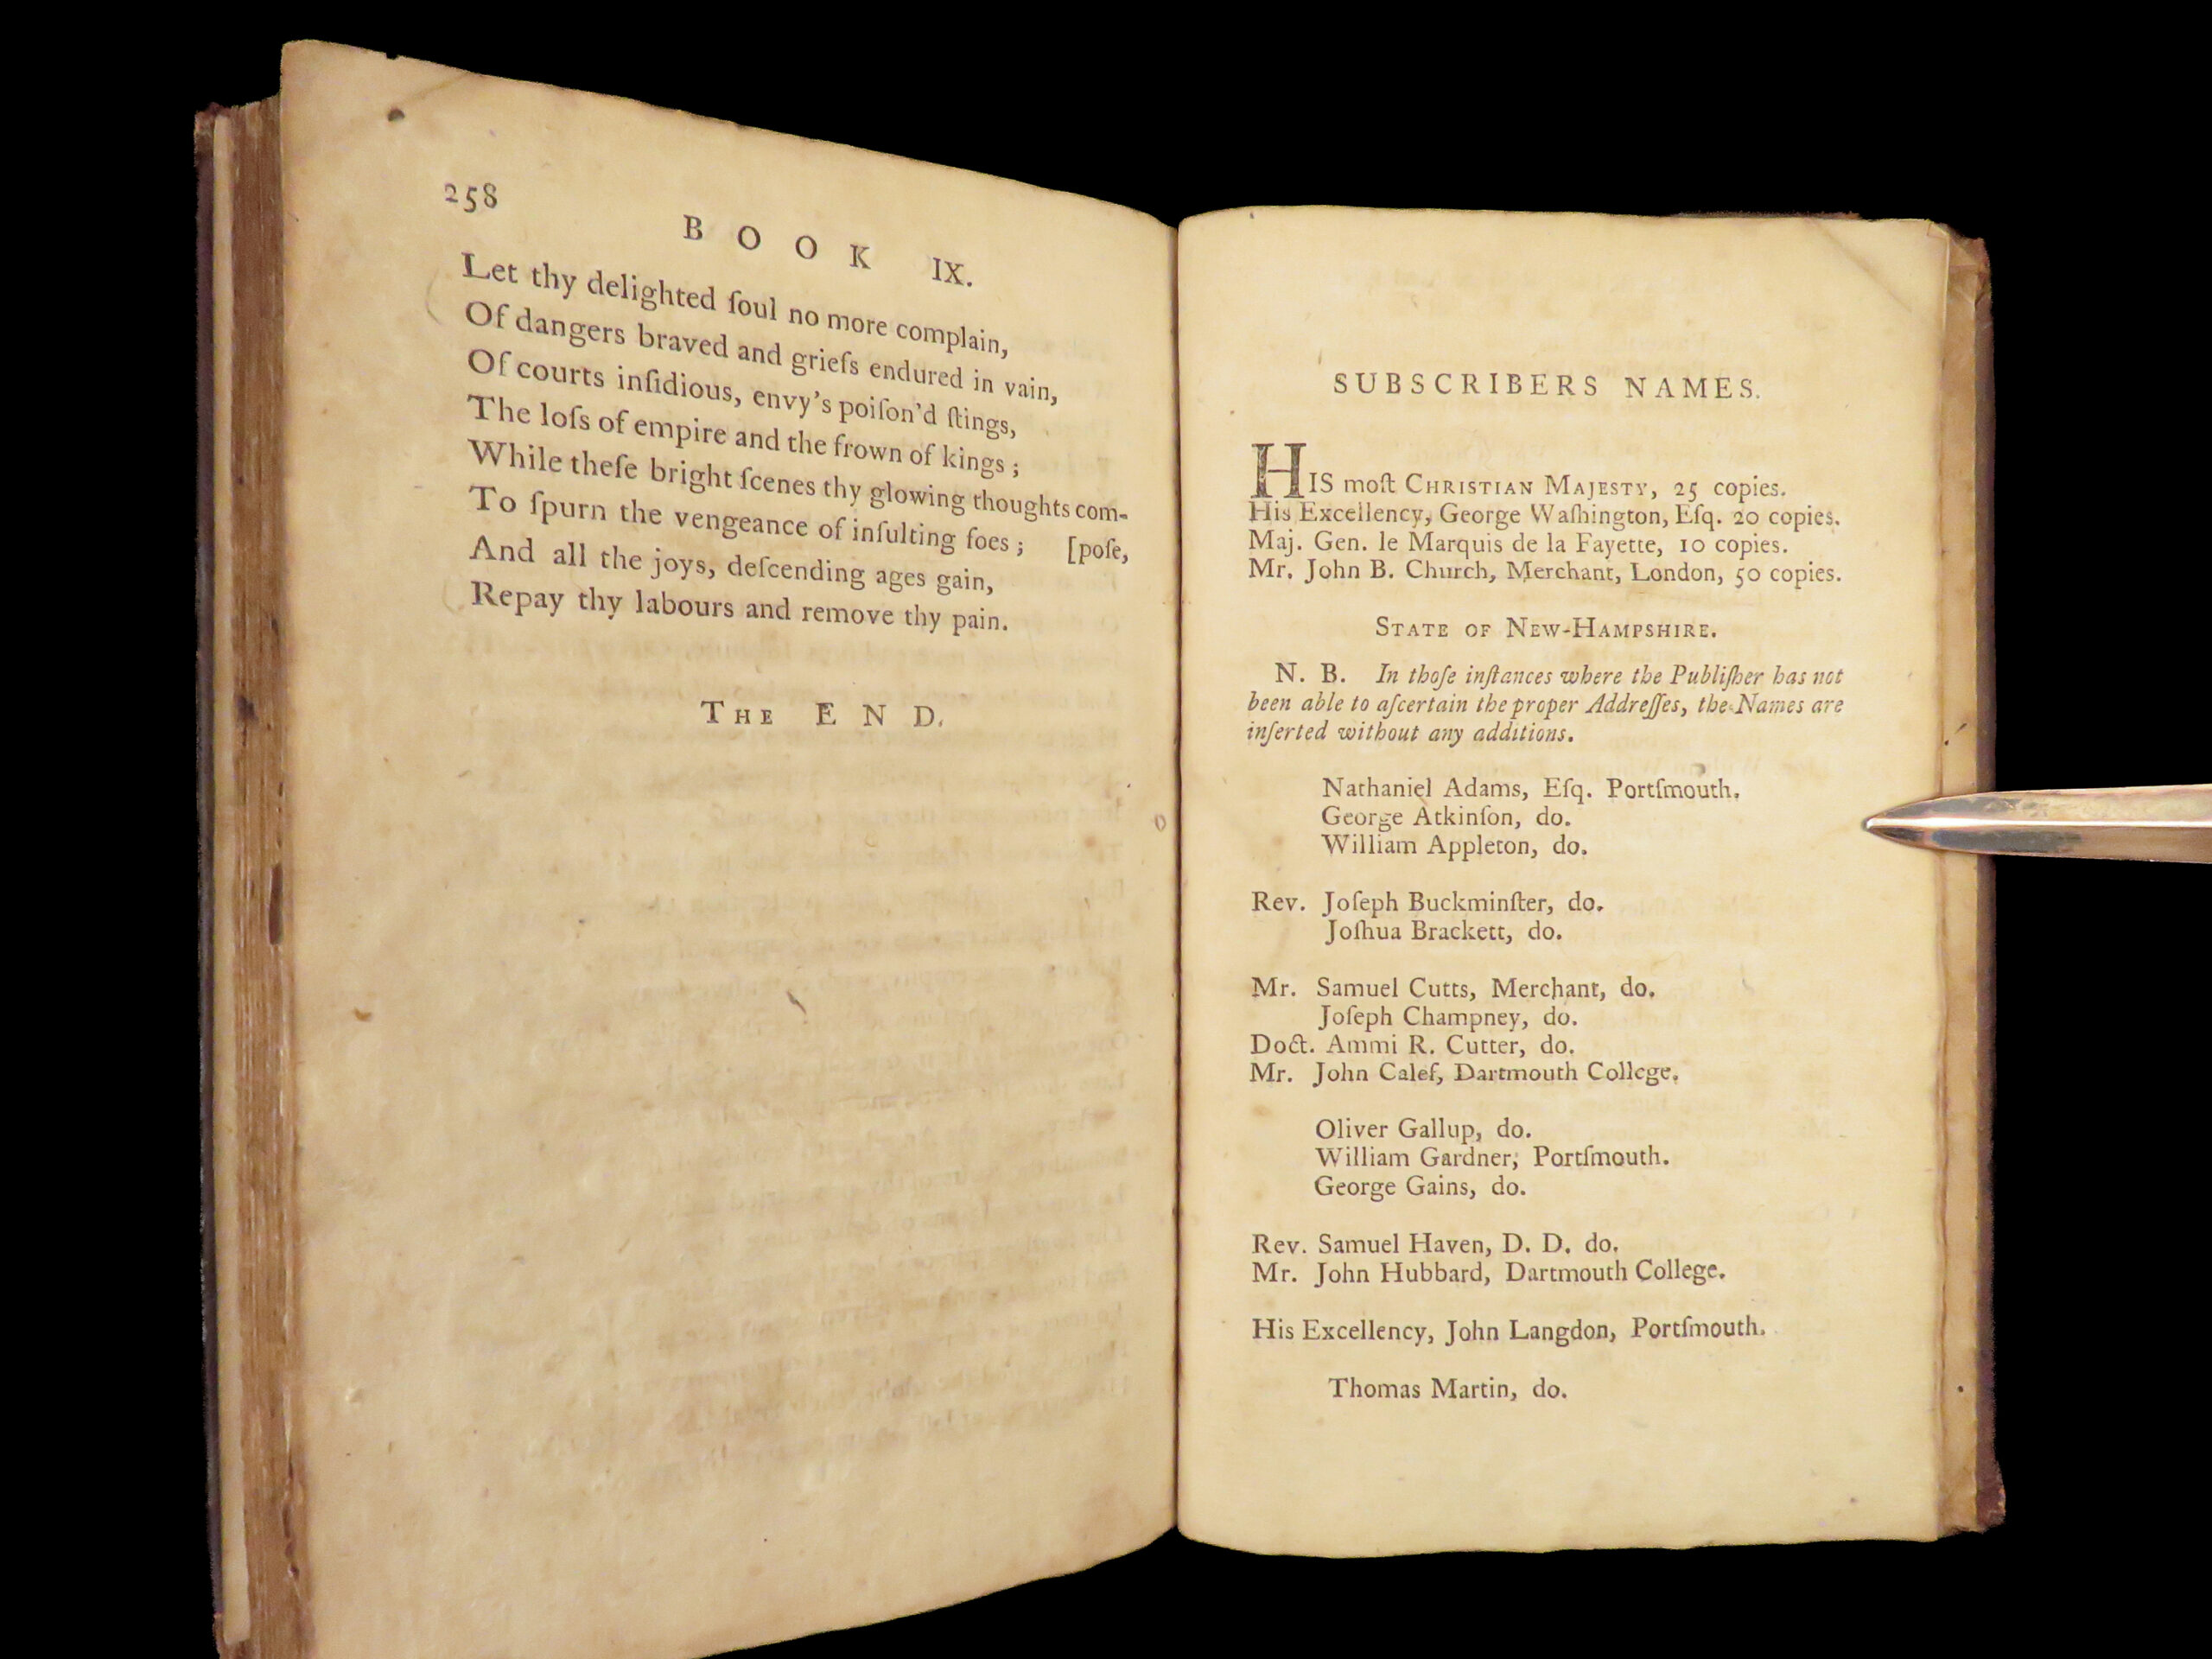 258
BOOK IX.
Let thy delighted ſoul no more complain,
Of dangers braved and grieſs endured in vain,
Of courts inſidious, envy's poiſon'd ſtings,
The loſs of empire and the frown of kings;
While theſe bright ſcenes thy glowing thoughts com-
To ſpurn the vengeance of inſulting foes; [poſe,
And all the joys, deſcending ages gain,
Repay thy labours and remove thy pain.
THE END.
SUBSCRIBERS NAMES.
HIS moſt CHRISTIAN MAJESTY, 25 copies.
His Excellency, George Waſhington, Eſq. 20 copies.
Maj. Gen. le Marquis de la Fayette, 10 copies.
Mr. John B. Church, Merchant, London, 50 copies.
STATE OF NEW-HAMPSHIRE.
N. B. In thoſe inſtances where the Publiſher has not
been able to aſcertain the proper Addreſſes, the Names are
inſerted without any additions.
Nathaniel Adams, Eſq. Portſmouth.
George Atkinſon, do.
William Appleton, do.
Rev. Joſeph Buckminſter, do.
Joſhua Brackett, do.
Mr. Samuel Cutts, Merchant, do.
Joſeph Champney, do.
Doct. Ammi R. Cutter, do.
Mr. John Calef, Dartmouth College.
Oliver Gallup, do.
William Gardner, Portſmouth.
George Gains, do.
Rev. Samuel Haven, D. D. do.
Mr. John Hubbard, Dartmouth College.
His Excellency, John Langdon, Portſmouth.
Thomas Martin, do.